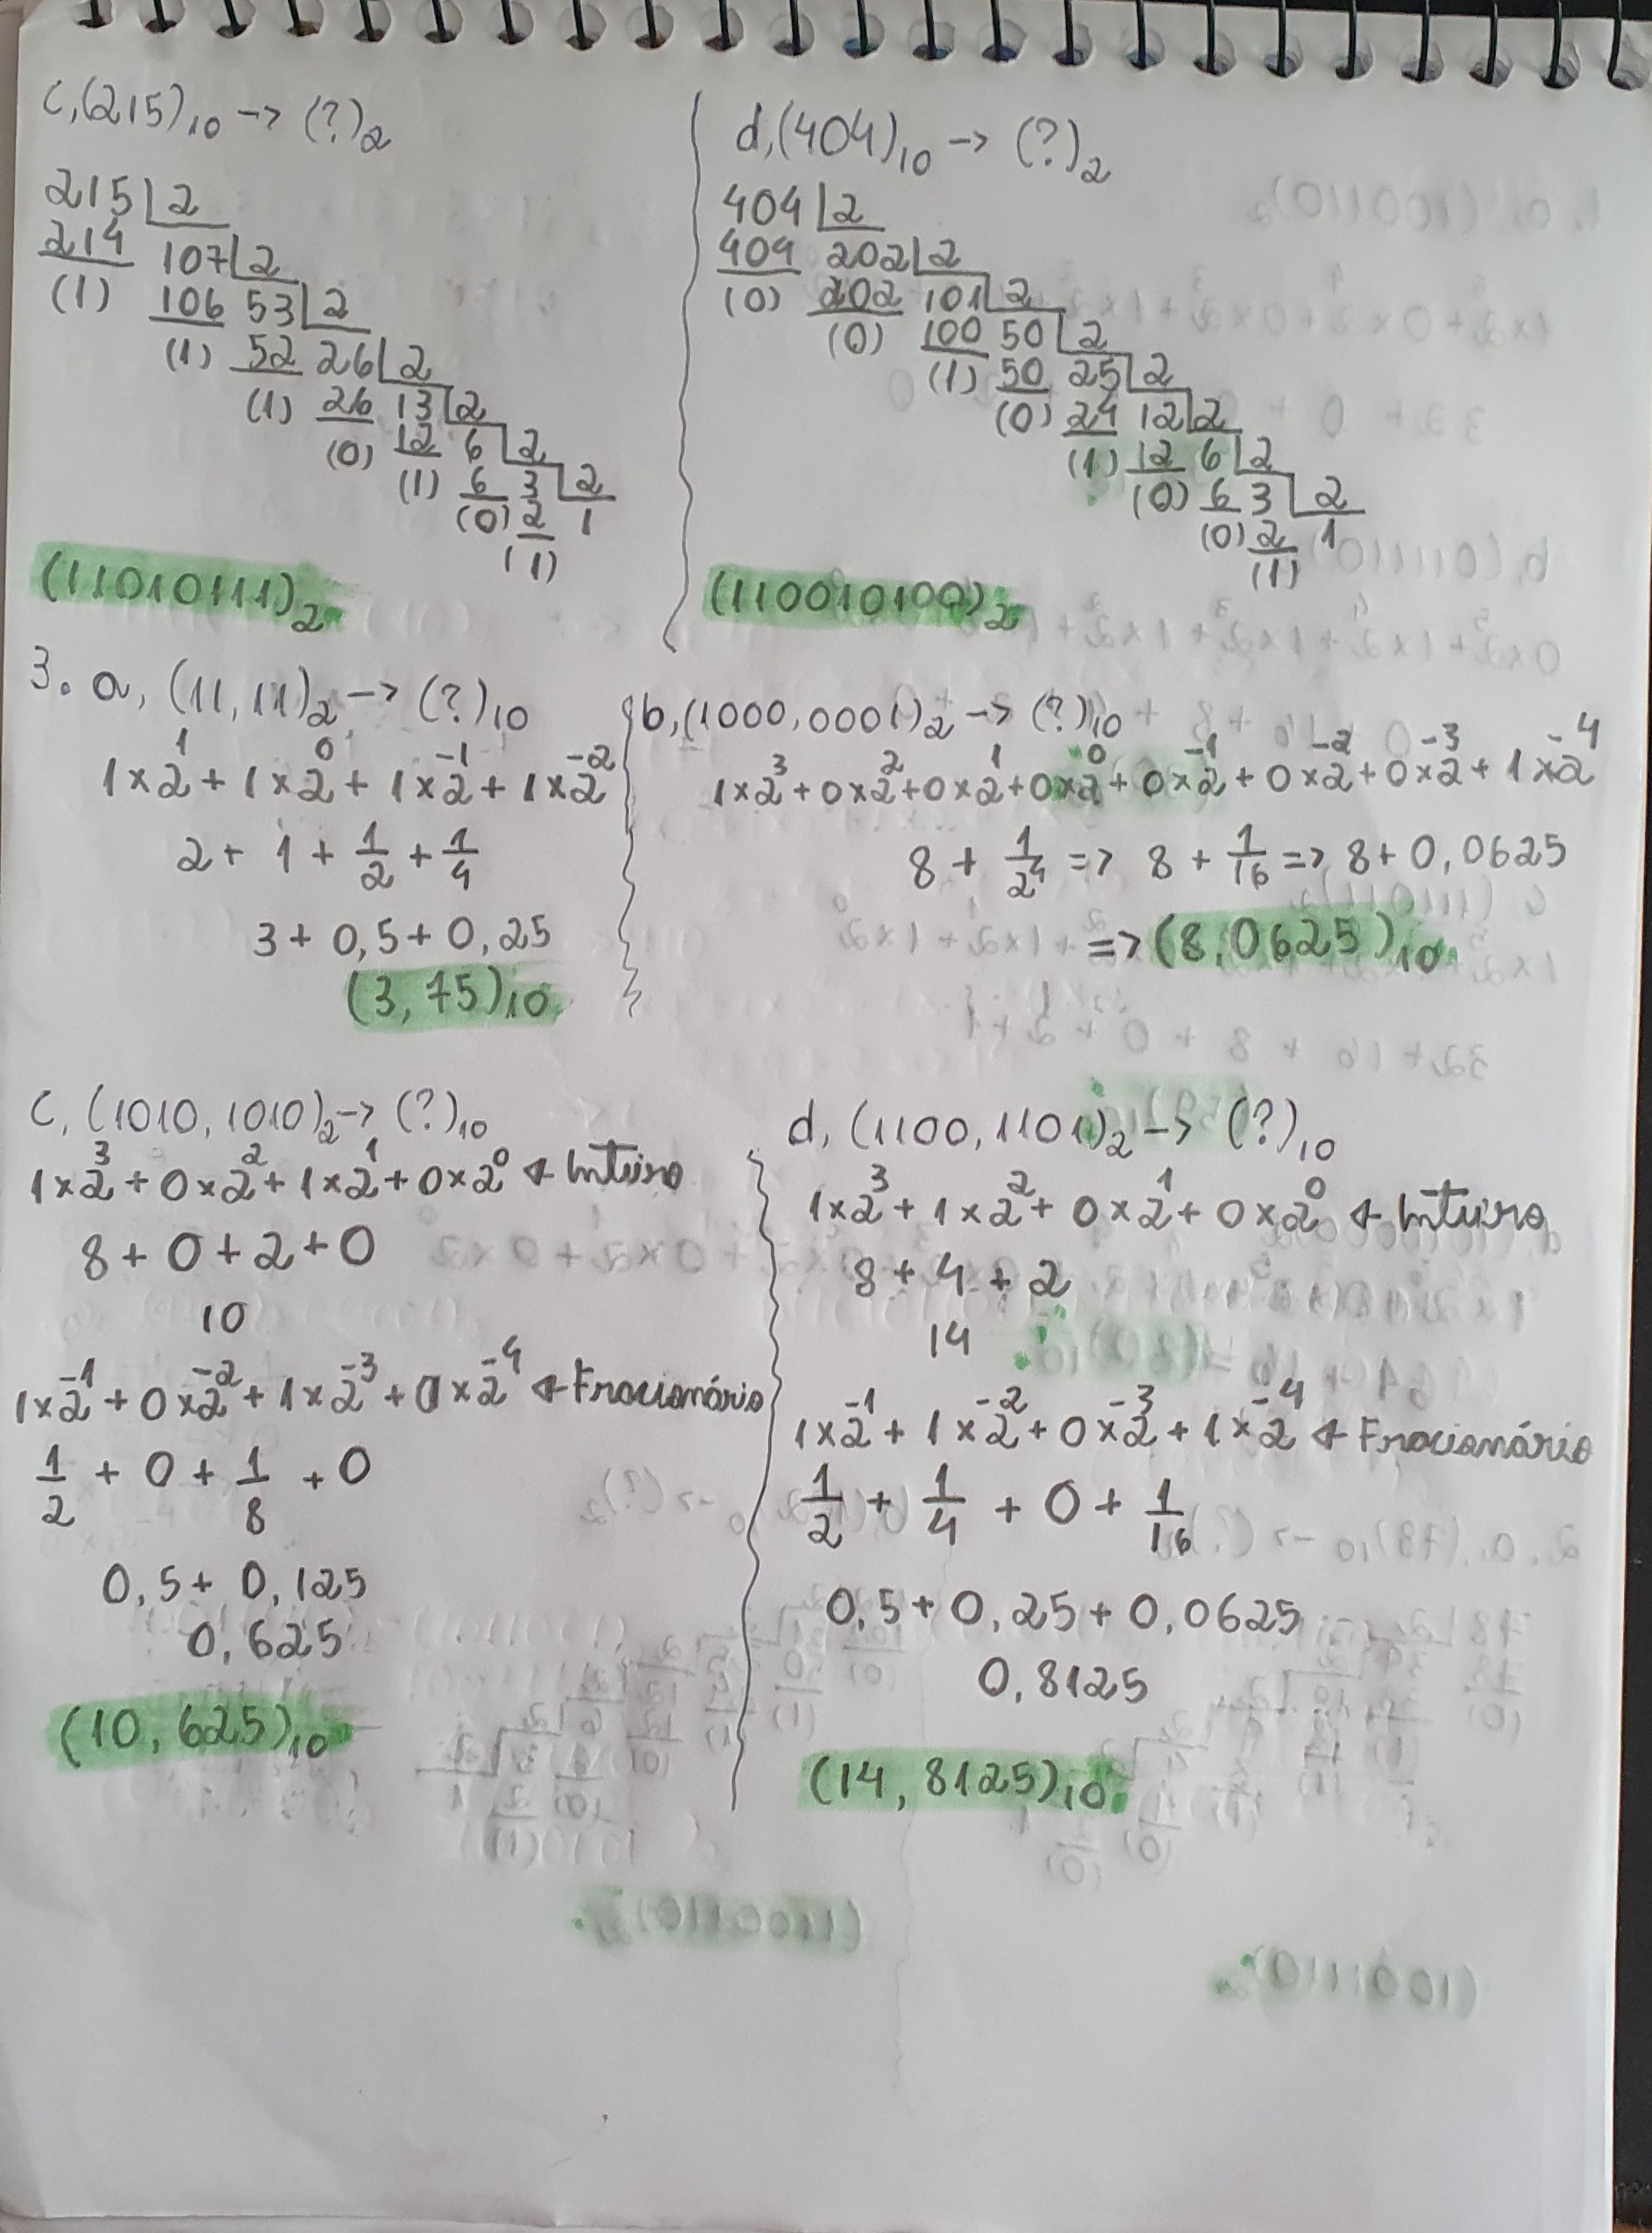 c, (215)₁₀ -> (?)₂
215 | 2
214 107 | 2
(1) 106 53 | 2
(1) 52 26 | 2
(1) 26 13 | 2
(0) 12 6 | 2
(1) 6 3 | 2
(0) 2 1
(1)
(11010111)₂
d, (404)₁₀ -> (?)₂
404 | 2
404 202 | 2
(0) 202 101 | 2
(0) 100 50 | 2
(1) 50 25 | 2
(0) 24 12 | 2
(1) 12 6 | 2
(0) 6 3 | 2
(0) 2 1
(1)
(110010100)₂
3. a, (11,11)₂ -> (?)₁₀
1x2¹ + 1x2⁰ + 1x2⁻¹ + 1x2⁻²
2 + 1 + 1/2 + 1/4
3 + 0,5 + 0,25
(3,75)₁₀
b, (1000,0001)₂ -> (?)₁₀
1x2³ + 0x2² + 0x2¹ + 0x2⁰ + 0x2⁻¹ + 0x2⁻² + 0x2⁻³ + 1x2⁻⁴
8 + 1/2⁴ => 8 + 1/16 => 8 + 0,0625
=> (8,0625)₁₀
c, (1010,1010)₂ -> (?)₁₀
1x2³ + 0x2² + 1x2¹ + 0x2⁰ ← Inteiro
8 + 0 + 2 + 0
10
1x2⁻¹ + 0x2⁻² + 1x2⁻³ + 0x2⁻⁴ ← Fracionário
1/2 + 0 + 1/8 + 0
0,5 + 0,125
0,625
(10,625)₁₀
d, (1100,1101)₂ -> (?)₁₀
1x2³ + 1x2² + 0x2¹ + 0x2⁰ ← Inteiro
8 + 4 + 2
14
1x2⁻¹ + 1x2⁻² + 0x2⁻³ + 1x2⁻⁴ ← Fracionário
1/2 + 1/4 + 0 + 1/16
0,5 + 0,25 + 0,0625
0,8125
(14,8125)₁₀